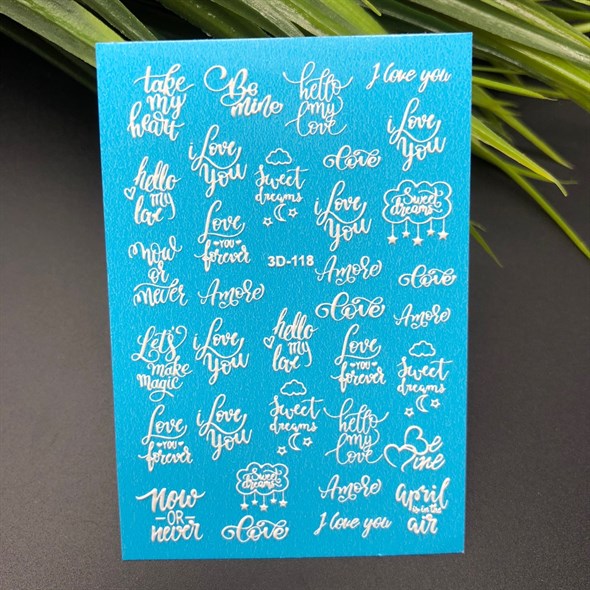 take
my
heart
Be
mine
hello
my
love
I love you
i Love
You
i Love
You
Sweet
dreams
Love
hello
my
love
i Love
You
Sweet
dreams
Love
YOU
forever
3D-118
now
or
never
Amore
Amore
Love
Love
Amore
Let's
make
magic
i Love
You
hello
my
love
Love
YOU
forever
Sweet
dreams
Love
YOU
forever
i Love
You
Sweet
dreams
hello
my
love
Be
mine
now
OR
never
Sweet
dreams
Love
Amore
I love you
april
is in the
air